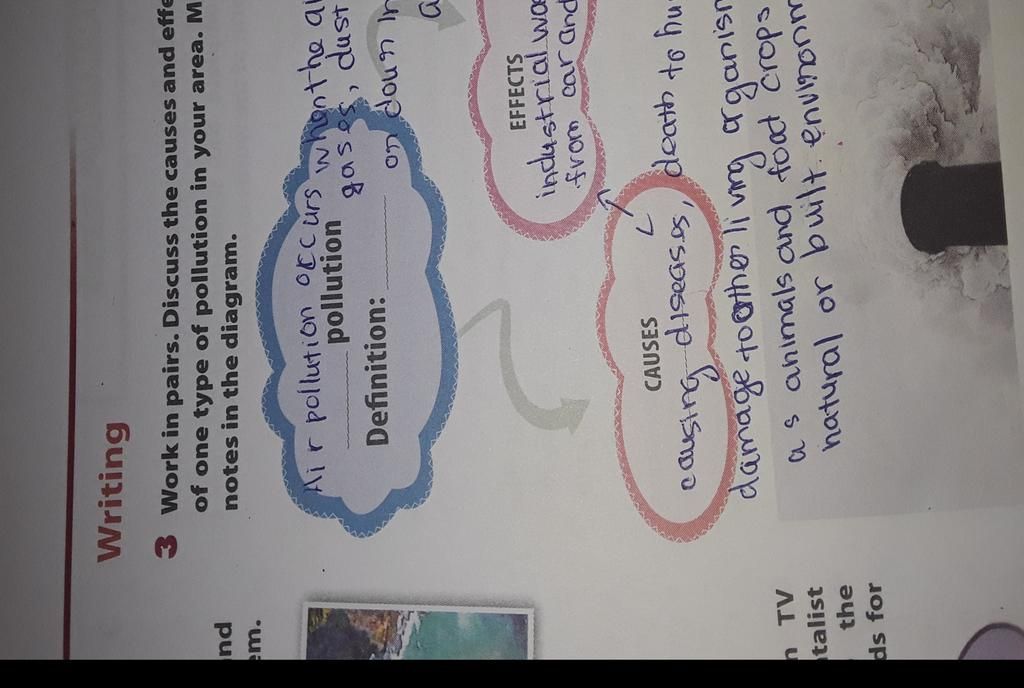 Writing
3 Work in pairs. Discuss the causes and effe
of one type of pollution in your area. M
notes in the diagram.
Air pollution occurs when the ai
pollution gases, dust
Definition: on down in
a
EFFECTS
industrial was
from car and
CAUSES
causing diseases, death to hu
damage to other living organism
as animals and food crops
natural or built environm
nd
em.
n TV
talist
the
ds for